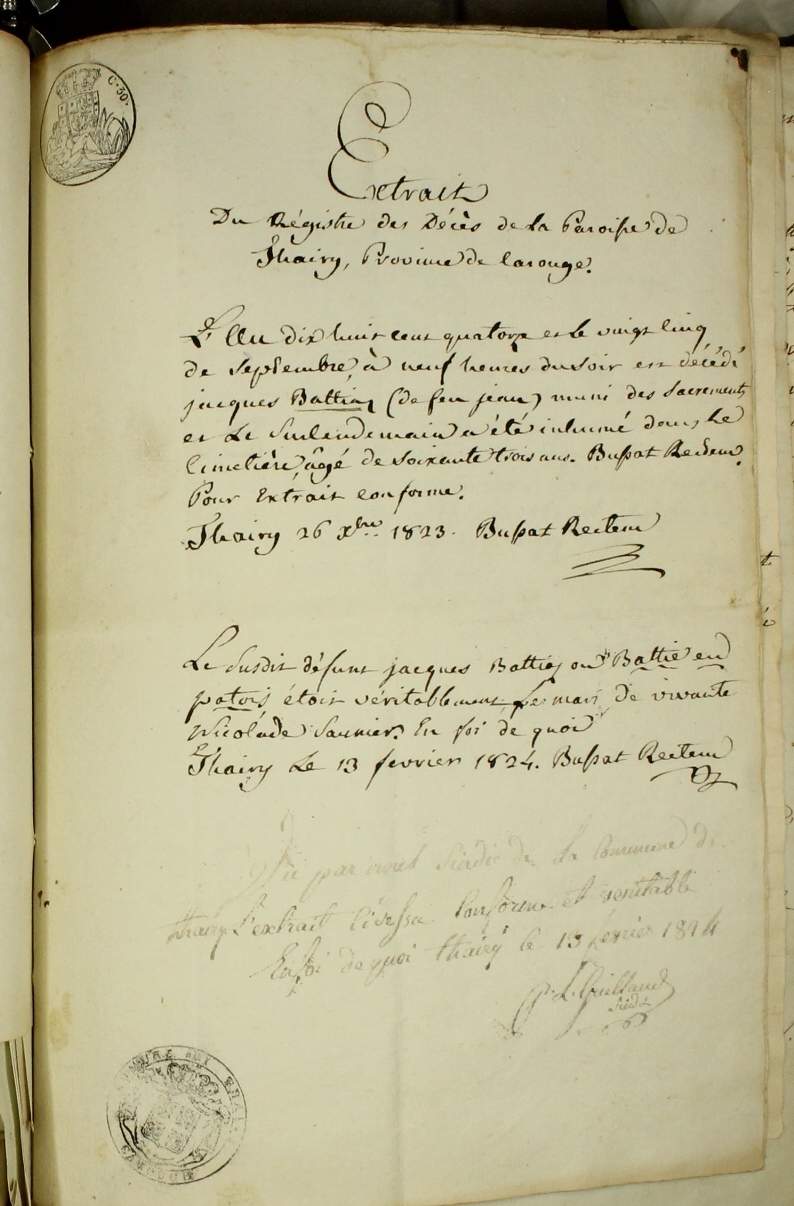 C. 30.
Extrait
Du Régistre des Décès de la Paroisse de
Thairy, Province de Carouge.
L'An dix huit cent quatorze et le vingt cinq
de Septembre, à neuf heures du soir est décédé
jacques Battiaz (de feu jean) muni des Sacrements,
et le Surlendemain a été inhumé dans le
Cimetière, âgé de soixante trois ans. Bussat Recteur.
Pour Extrait conforme.
Thairy 26 Xbre 1823. Bussat Recteur
Le Susdit défunt jacques Battiaz ou Battié en
patois étoit véritablement le mari de vivante
Nicolarde Saunier. En foi de quoi
Thairy le 13 fevrier 1824. Bussat Recteur
Vu par nous Sindic de la Commune de
thairy L'extrait Cidessu Conforme et veritable
En foi de quoi thairy le 13 fevrier 1824
Sindic